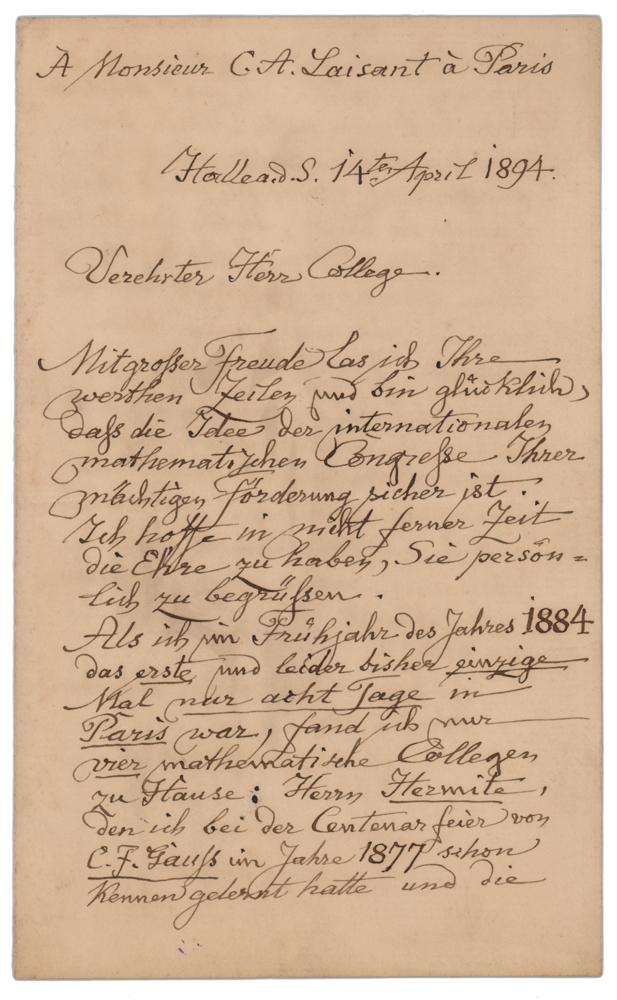 À Monsieur C. A. Laisant à Paris
Halle a.d. S. 14ten April 1894.
Verehrter Herr College.
Mit grosser Freude las ich Ihre
werthen Zeilen und bin glücklich,
daß die Idee der internationalen
mathematischen Congresse Ihrer
mächtigen Förderung sicher ist.
Ich hoffe in nicht ferner Zeit
die Ehre zu haben, Sie persön=
lich zu begrüßen.
Als ich im Frühjahr des Jahres 1884
das erste und leider bisher einzige
Mal nur acht Tage in
Paris war, fand ich nur
vier mathematische Collegen
zu Hause: Herrn Hermite,
den ich bei der Centenarfeier von
C. F. Gauß im Jahre 1877 schon
kennen gelernt hatte und die